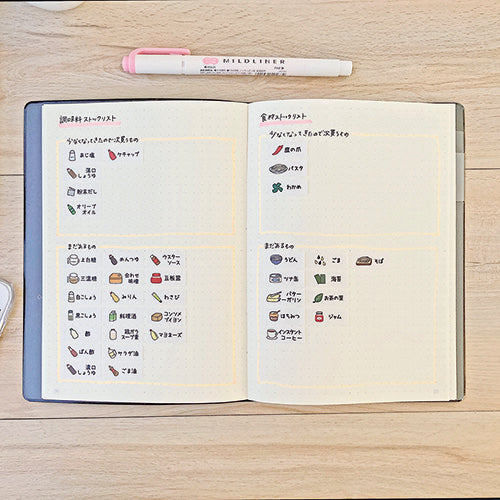 MILDLINER
調味料 ストックリスト
少なくなってきたので次買うもの
あじ塩
ケチャップ
濃口
しょうゆ
粉末だし
オリーブ
オイル
まだあるもの
上白糖
めんつゆ
ウスター
ソース
三温糖
合わせ
味噌
豆板醤
白こしょう
みりん
わさび
黒こしょう
料理酒
コンソメ
ブイヨン
酢
鶏ガラ
スープ素
マヨネーズ
ぽん酢
サラダ油
濃口
しょうゆ
ごま油
食料ストックリスト
少なくなってきたので次買うもの
鷹の爪
パスタ
わかめ
まだあるもの
うどん
ごま
そば
ツナ缶
海苔
バター
マーガリン
お茶の葉
はちみつ
ジャム
インスタント
コーヒー